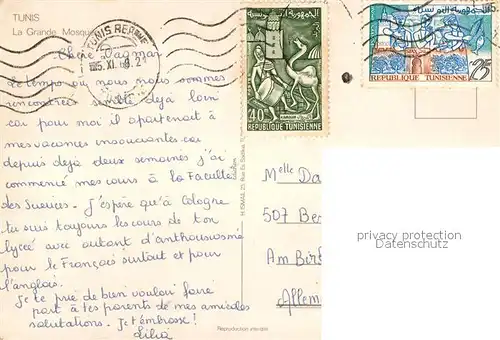 TUNIS
La Grande Mosquée
TUNIS RÉPUBLIQUE
Chère Dagmar
Le temps où nous nous sommes
rencontrés semble déjà loin
car pour moi il appartenait à
mes vacances insouciantes car
depuis déjà deux semaines j'ai
commencé mes cours à la Faculté
des Sciences. J'espère qu'à Cologne
tu suis toujours les cours de ton
lycée avec autant d'enthousiasme
pour le Français surtout et pour
l'anglais.
Je te prie de bien vouloir faire
part à tes parents de mes amicales
salutations. Je t'embrasse!
Lilia
40
KAIROUAN
REPUBLIQUE TUNISIENNE
REPUBLIQUE TUNISIENNE
25
Melle Da
507 Ber
Am Birk
Allem
privacy protection
Datenschutz
Reproduction interdite